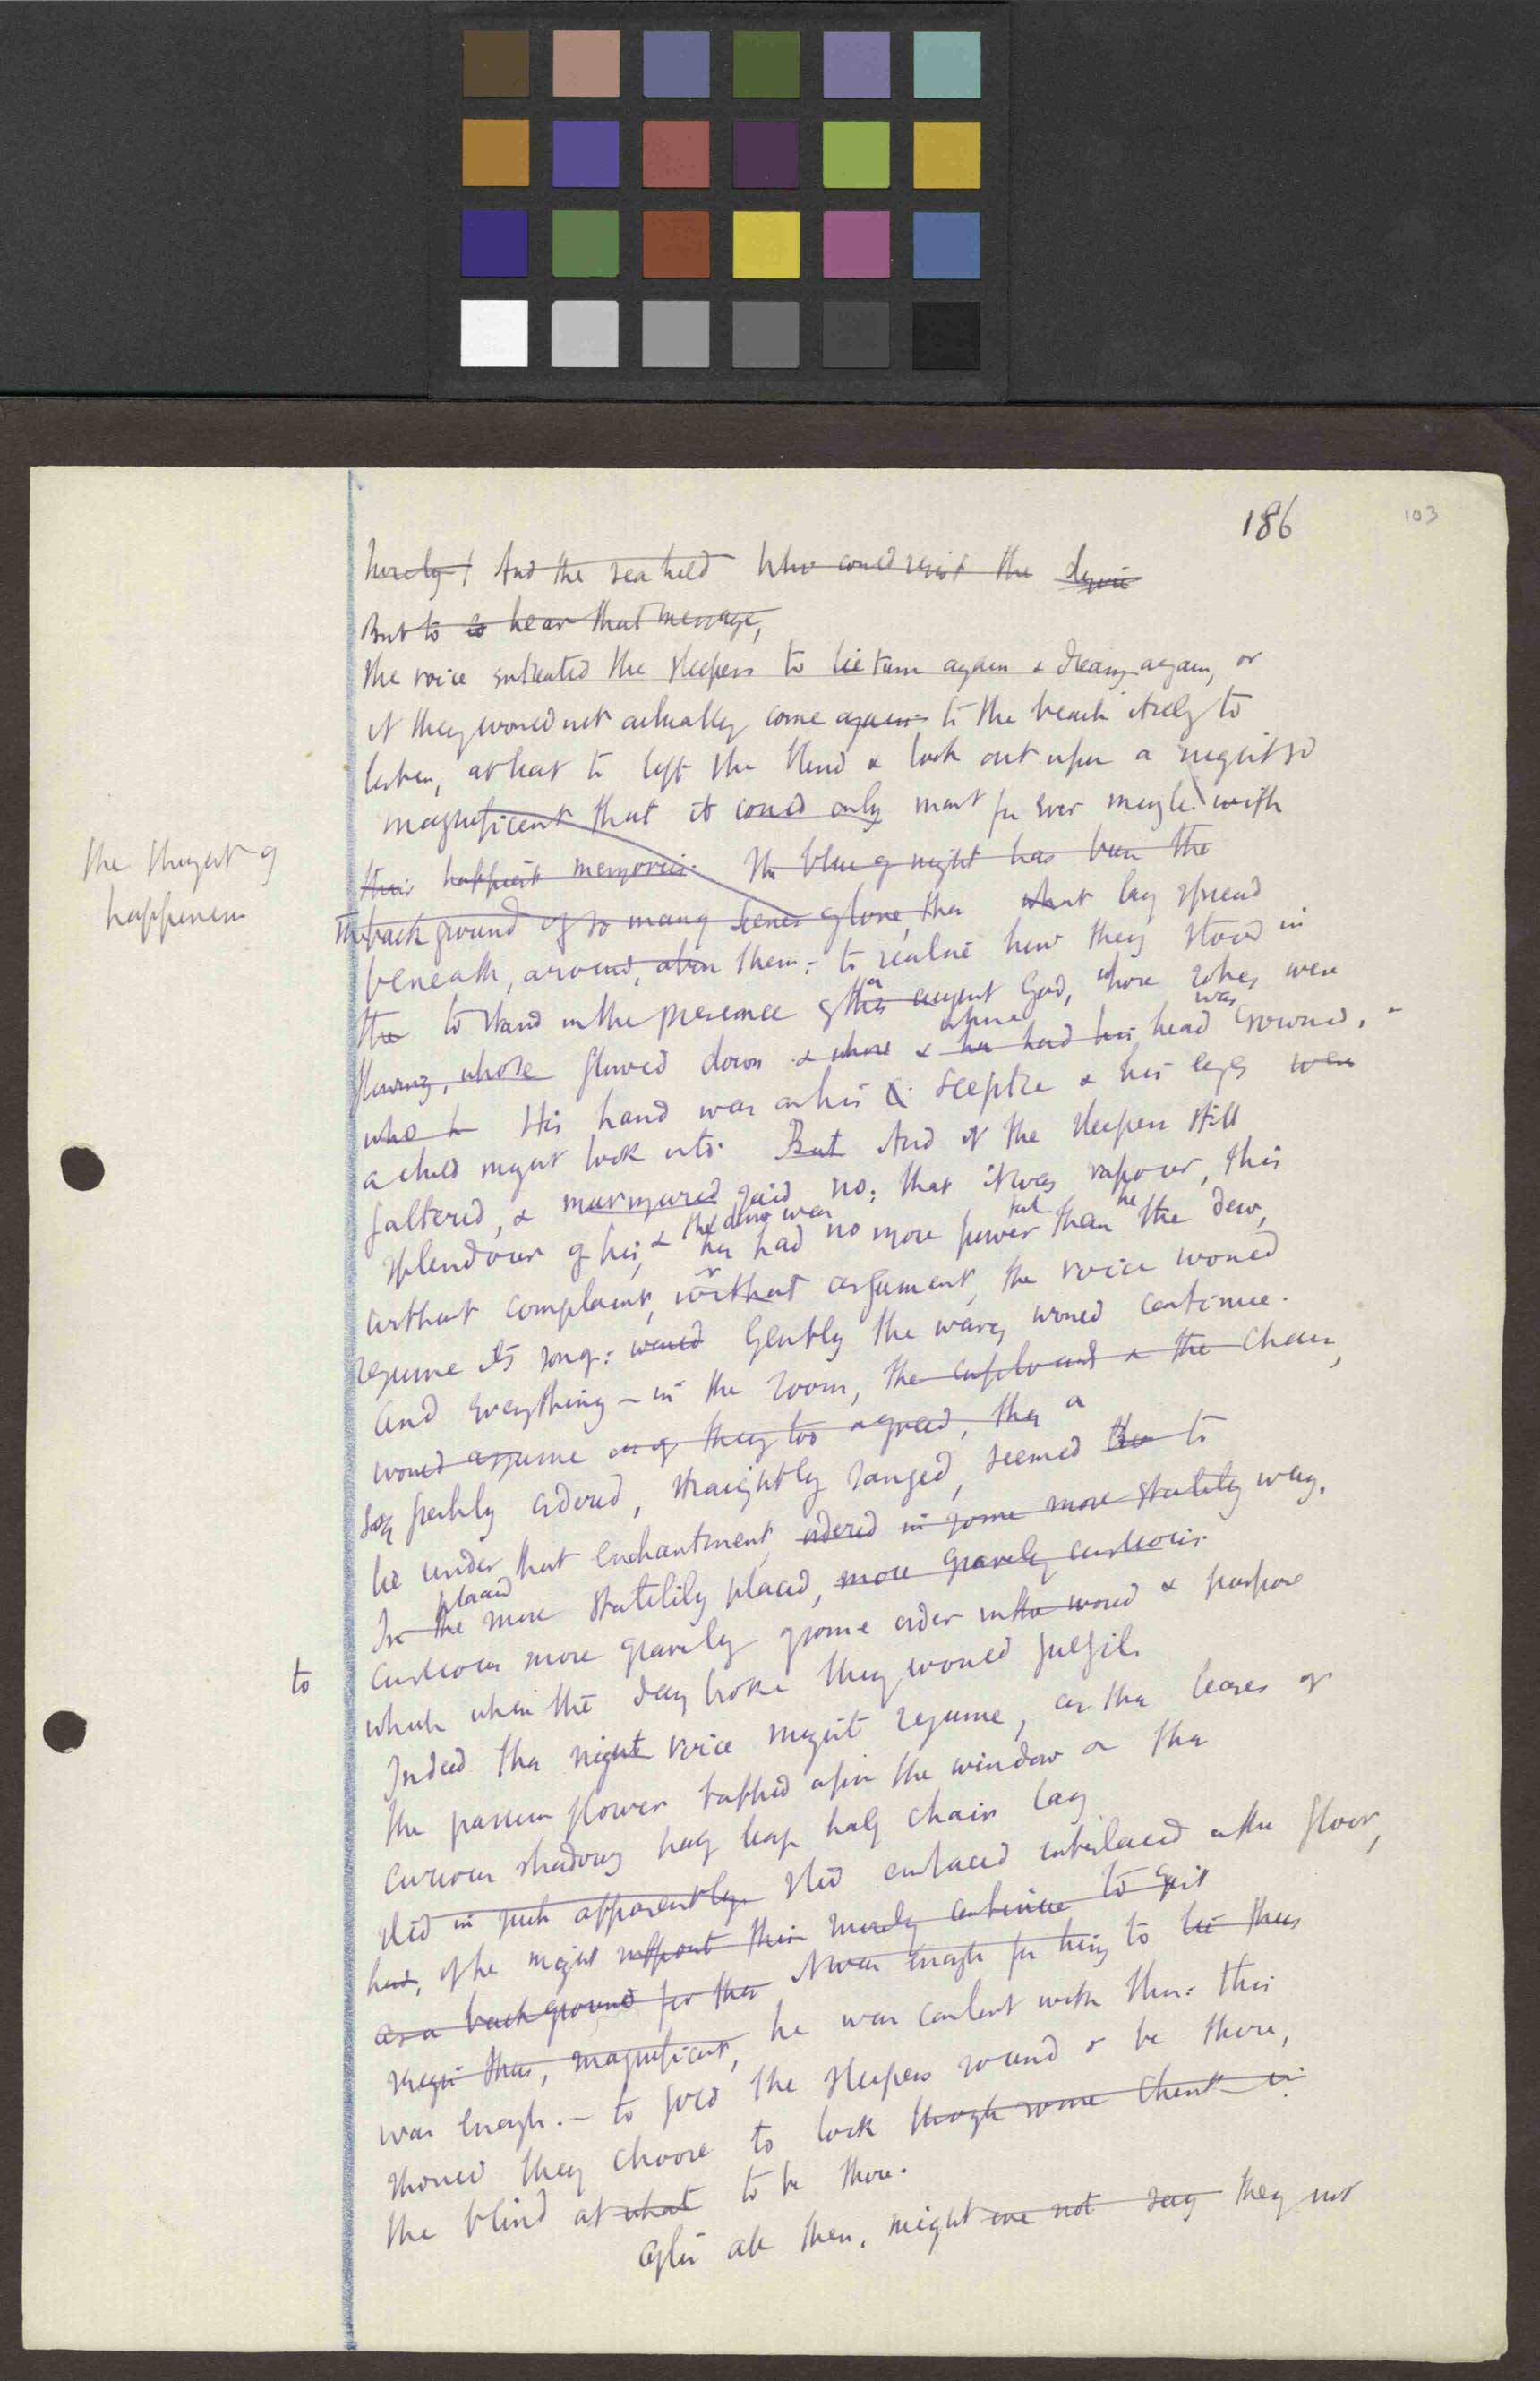 186
103
merely! And the sea held Who could resist the desire
But to to hear that message,
the voice entreated the sleepers to lie turn again & dream again, or
if they would not actually come again to the beach itself to
listen, at least to lift the blind & look out upon a night so
magnificent that it could only must for ever mingle with
their happiest memories. The blue of night has been the
the thought of
happiness
The background of so many scenes of love, that what lay spread
beneath, around, above them; to realise how they stood in
the to stand in the presence of this a august God, whose robes were
flowing, whose flowed down & whose & he had his whose head was crowned,
who h His hand was on his sceptre & his eyes were
a child might look into. But And if the sleepers still
faltered, & murmured said no; that it was vapour, this
splendour of his, & the dew was he had no more power than the dew,
without complaint, or without argument, the voice would
resume its song: would Gently the waves would continue.
And everything - in the room, the cupboard & the chair,
would assume as if they too agreed, the a
so ordered, straightly ranged, seemed to
be under that enchantment, ordered in some more stately way,
In the placed more statelily placed, more gravely
more gravely some order in the world & purpose
to
which when the day broke they would fulfil.
Indeed the night voice might resume, as the leaves of
the passion flower tapped upon the window & the
curious shadows half leaf half chair lay
slid in such apparently slid enlaced interlaced on the floor,
he might support this merely continue to exist
as a background for the It was enough for him to be thus
reign thus, magnificent, he was content with this: this
was enough. - to fold the sleepers round & be there,
should they choose to look through some chink in
the blind at what to be there.
After all then, might one not say they not